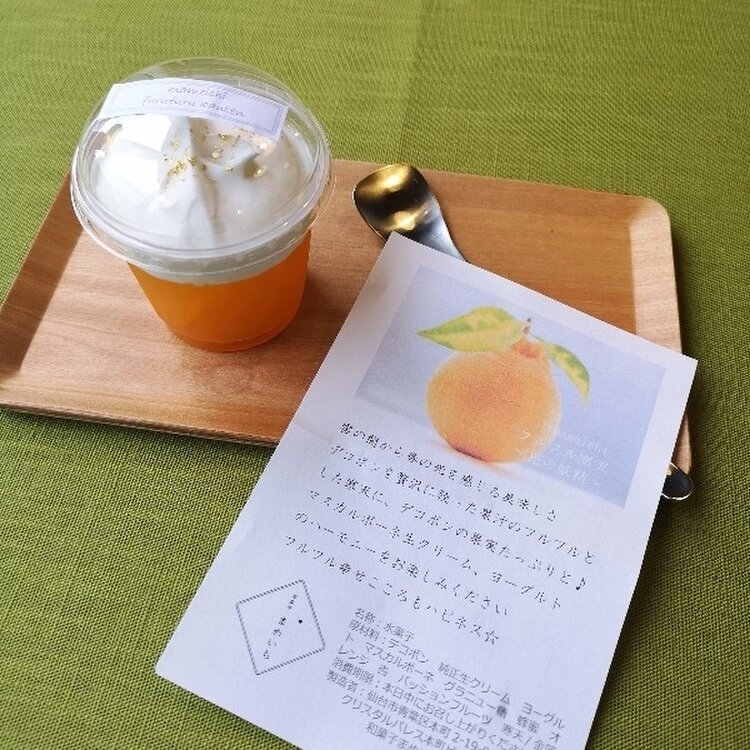 mameichi
furufuru kanten
mameichi
フルフル寒天
雲の間から春の光を感じる美味しさ
デコポンを贅沢に絞った果汁のフルフルと
した寒天に、デコポンの果実たっぷりと♪
マスカルポーネ生クリーム、ヨーグルト
のハーモニーをお楽しみください
フルフル幸せこころもハピネス☆
まめいち
名称：水菓子
原材料：デコポン 純正生クリーム ヨーグル
ト マスカルポーネ グラニュー糖 蜂蜜 オ
レンジ 杏 パッションフルーツ 寒天/
消費期限：本日中にお召し上がりくだ
製造者：仙台市青葉区本町2-19-
クリスタルパレス本町
和菓子まめ